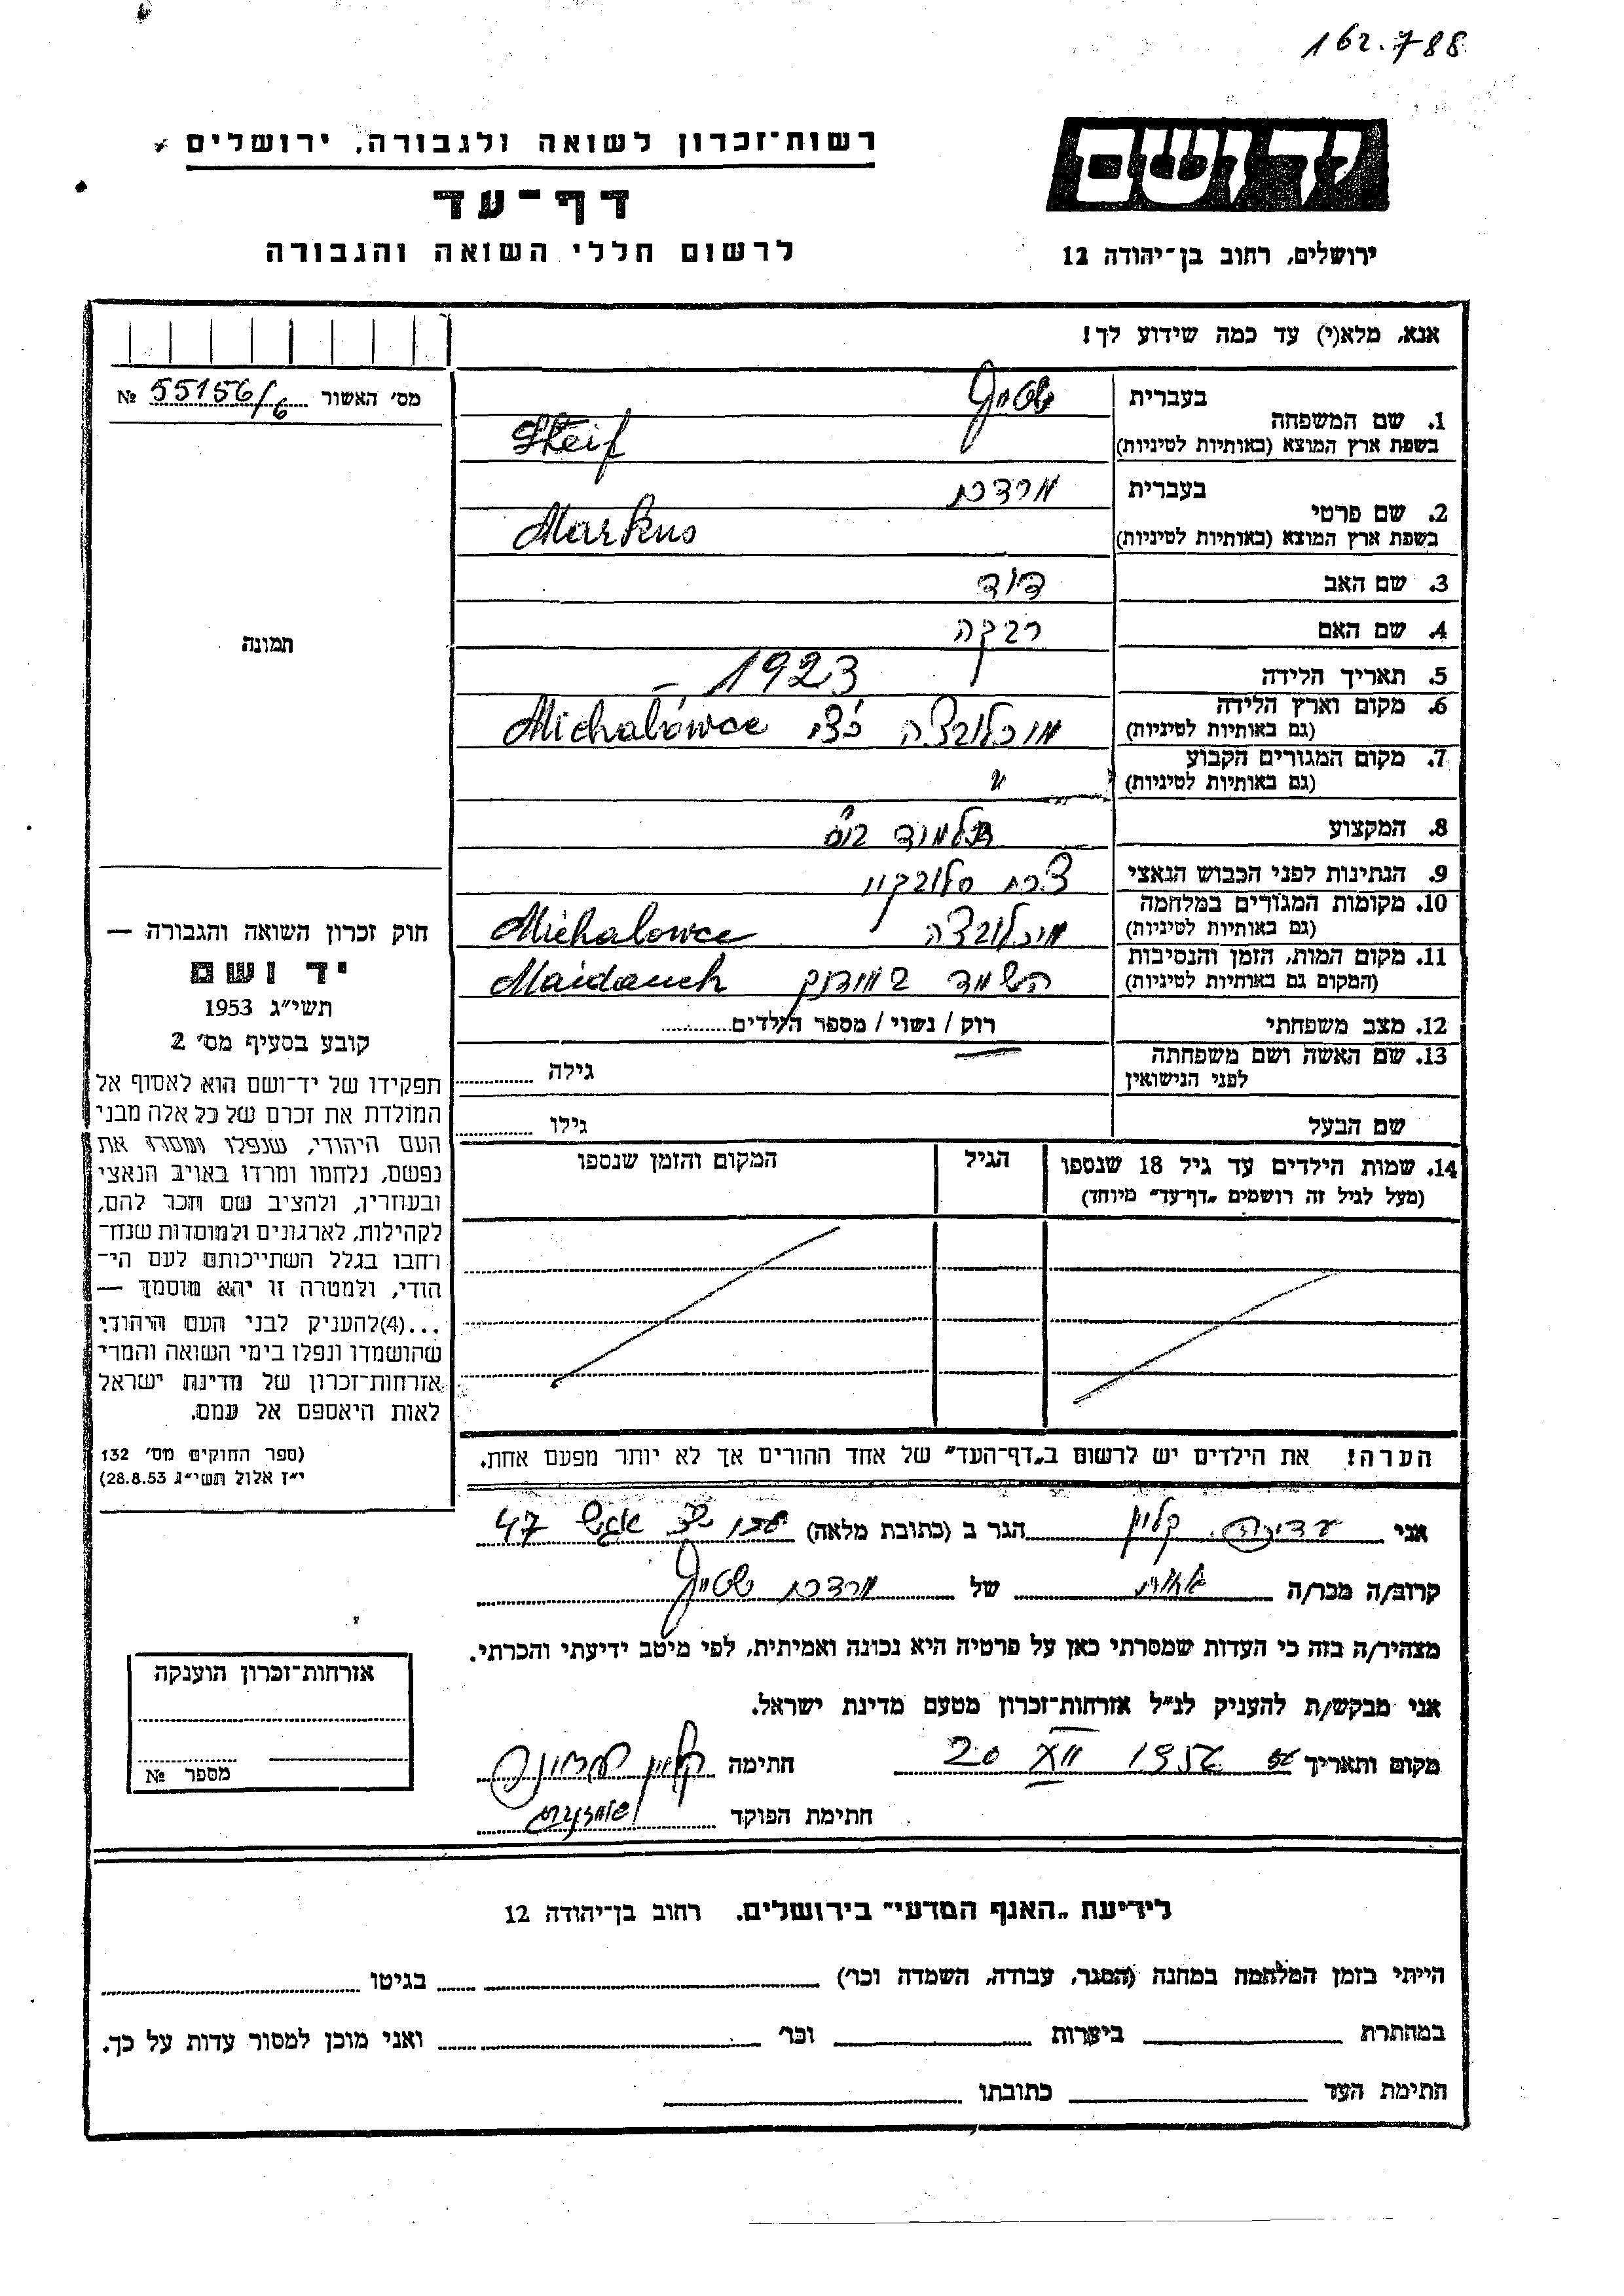 162.788
יד ושם
ירושלים, רחוב בן־יהודה 12
רשות־זכרון לשואה ולגבורה, ירושלים
דף־עד
לרשום חללי השואה והגבורה
אנא, מלא(י) עד כמה שידוע לך!
מס׳ האשור 55156/6 №
1. שם המשפחה
בעברית שטייף
בשפת ארץ המוצא (באותיות לטיניות) Steif
2. שם פרטי
בעברית מרדכי
בשפת ארץ המוצא (באותיות לטיניות) Markus
3. שם האב דוד
4. שם האם רבקה
5. תאריך הלידה 1923
6. מקום וארץ הלידה
(גם באותיות לטיניות) מיכלובצה Michalówce
7. מקום המגורים הקבוע
(גם באותיות לטיניות) "
8. המקצוע תלמוד
9. הנתינות לפני הכבוש הנאצי
10. מקומות המגורים במלחמה
(גם באותיות לטיניות) מיכלובצה Michalowce
11. מקום המות, הזמן והנסיבות
(המקום גם באותיות לטיניות) השמד במידנק Maidanek
12. מצב משפחתי רוק / נשוי / מספר הילדים
13. שם האשה ושם משפחתה
לפני הנישואין גילה
שם הבעל גילו
14. שמות הילדים עד גיל 18 שנספו
(מעל לגיל זה רושמים „דף־עד״ מיוחד)
הגיל
המקום והזמן שנספו
הערה! את הילדים יש לרשום ב„דף־העד״ של אחד ההורים אך לא יותר מפעם אחת.
תמונה
חוק זכרון השואה והגבורה —
יד ושם
תשי״ג 1953
קובע בסעיף מס׳ 2
תפקידו של יד־ושם הוא לאסוף אל
המולדת את זכרם של כל אלה מבני
העם היהודי, שנפלו ומסרו את
נפשם, נלחמו ומרדו באויב הנאצי
ובעוזריו, ולהציב שם וזכר להם,
לקהילות, לארגונים ולמוסדות שנח־
רחבו בגלל השתייכותם לעם הי־
הודי, ולמטרה זו יהא מוסמך —
...(4)להעניק לבני העם היהודי
שהושמדו ונפלו בימי השואה והמרי
אזרחות־זכרון של מדינת ישראל
לאות היאספם אל עמם.
(ספר החוקים מס׳ 132
י״ז אלול תשי״ג 28.8.53)
אני קליין הגר ב (כתובת מלאה) 47
קרוב/ה מכר/ה אחות של מרדכי שטייף
מצהיר/ה בזה כי העדות שמסרתי כאן על פרטיה היא נכונה ואמיתית, לפי מיטב ידיעתי והכרתי.
אני מבקש/ת להעניק לנ״ל אזרחות־זכרון מטעם מדינת ישראל.
מקום ותאריך 20 XII 1956 חתימה קליין
חתימת הפוקד
אזרחות־זכרון הוענקה
מספר №
לידיעת „האגף המדעי״ בירושלים. רחוב בן־יהודה 12
הייתי בזמן המלחמה במחנה (הסגר, עבודה, השמדה וכו׳) בגיטו
במחתרת ביערות וכו׳ ואני מוכן למסור עדות על כך.
חתימת העד כתובתו